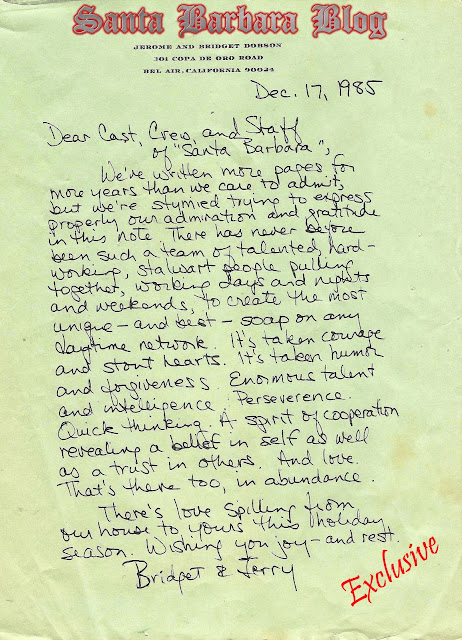 Santa Barbara Blog
JEROME AND BRIDGET DOBSON
301 COPA DE ORO ROAD
BEL AIR, CALIFORNIA 90024
Dec. 17, 1985
Dear Cast, Crew, and Staff
of "Santa Barbara",
We've written more pages for
more years than we care to admit,
but we're stymied trying to express
properly our admiration and gratitude
in this note. There has never before
been such a team of talented, hard-
working, stalwart people pulling
together, working days and nights
and weekends, to create the most
unique - and best - soap on any
daytime network. It's taken courage
and stout hearts. It's taken humor
and forgiveness. Enormous talent
and intelligence. Perseverence.
Quick thinking. A spirit of cooperation
revealing a belief in self as well
as a trust in others. And love.
That's there too, in abundance.
There's love spilling from
our house to yours this holiday
season. Wishing you joy - and rest.
Bridget & Jerry
Exclusive